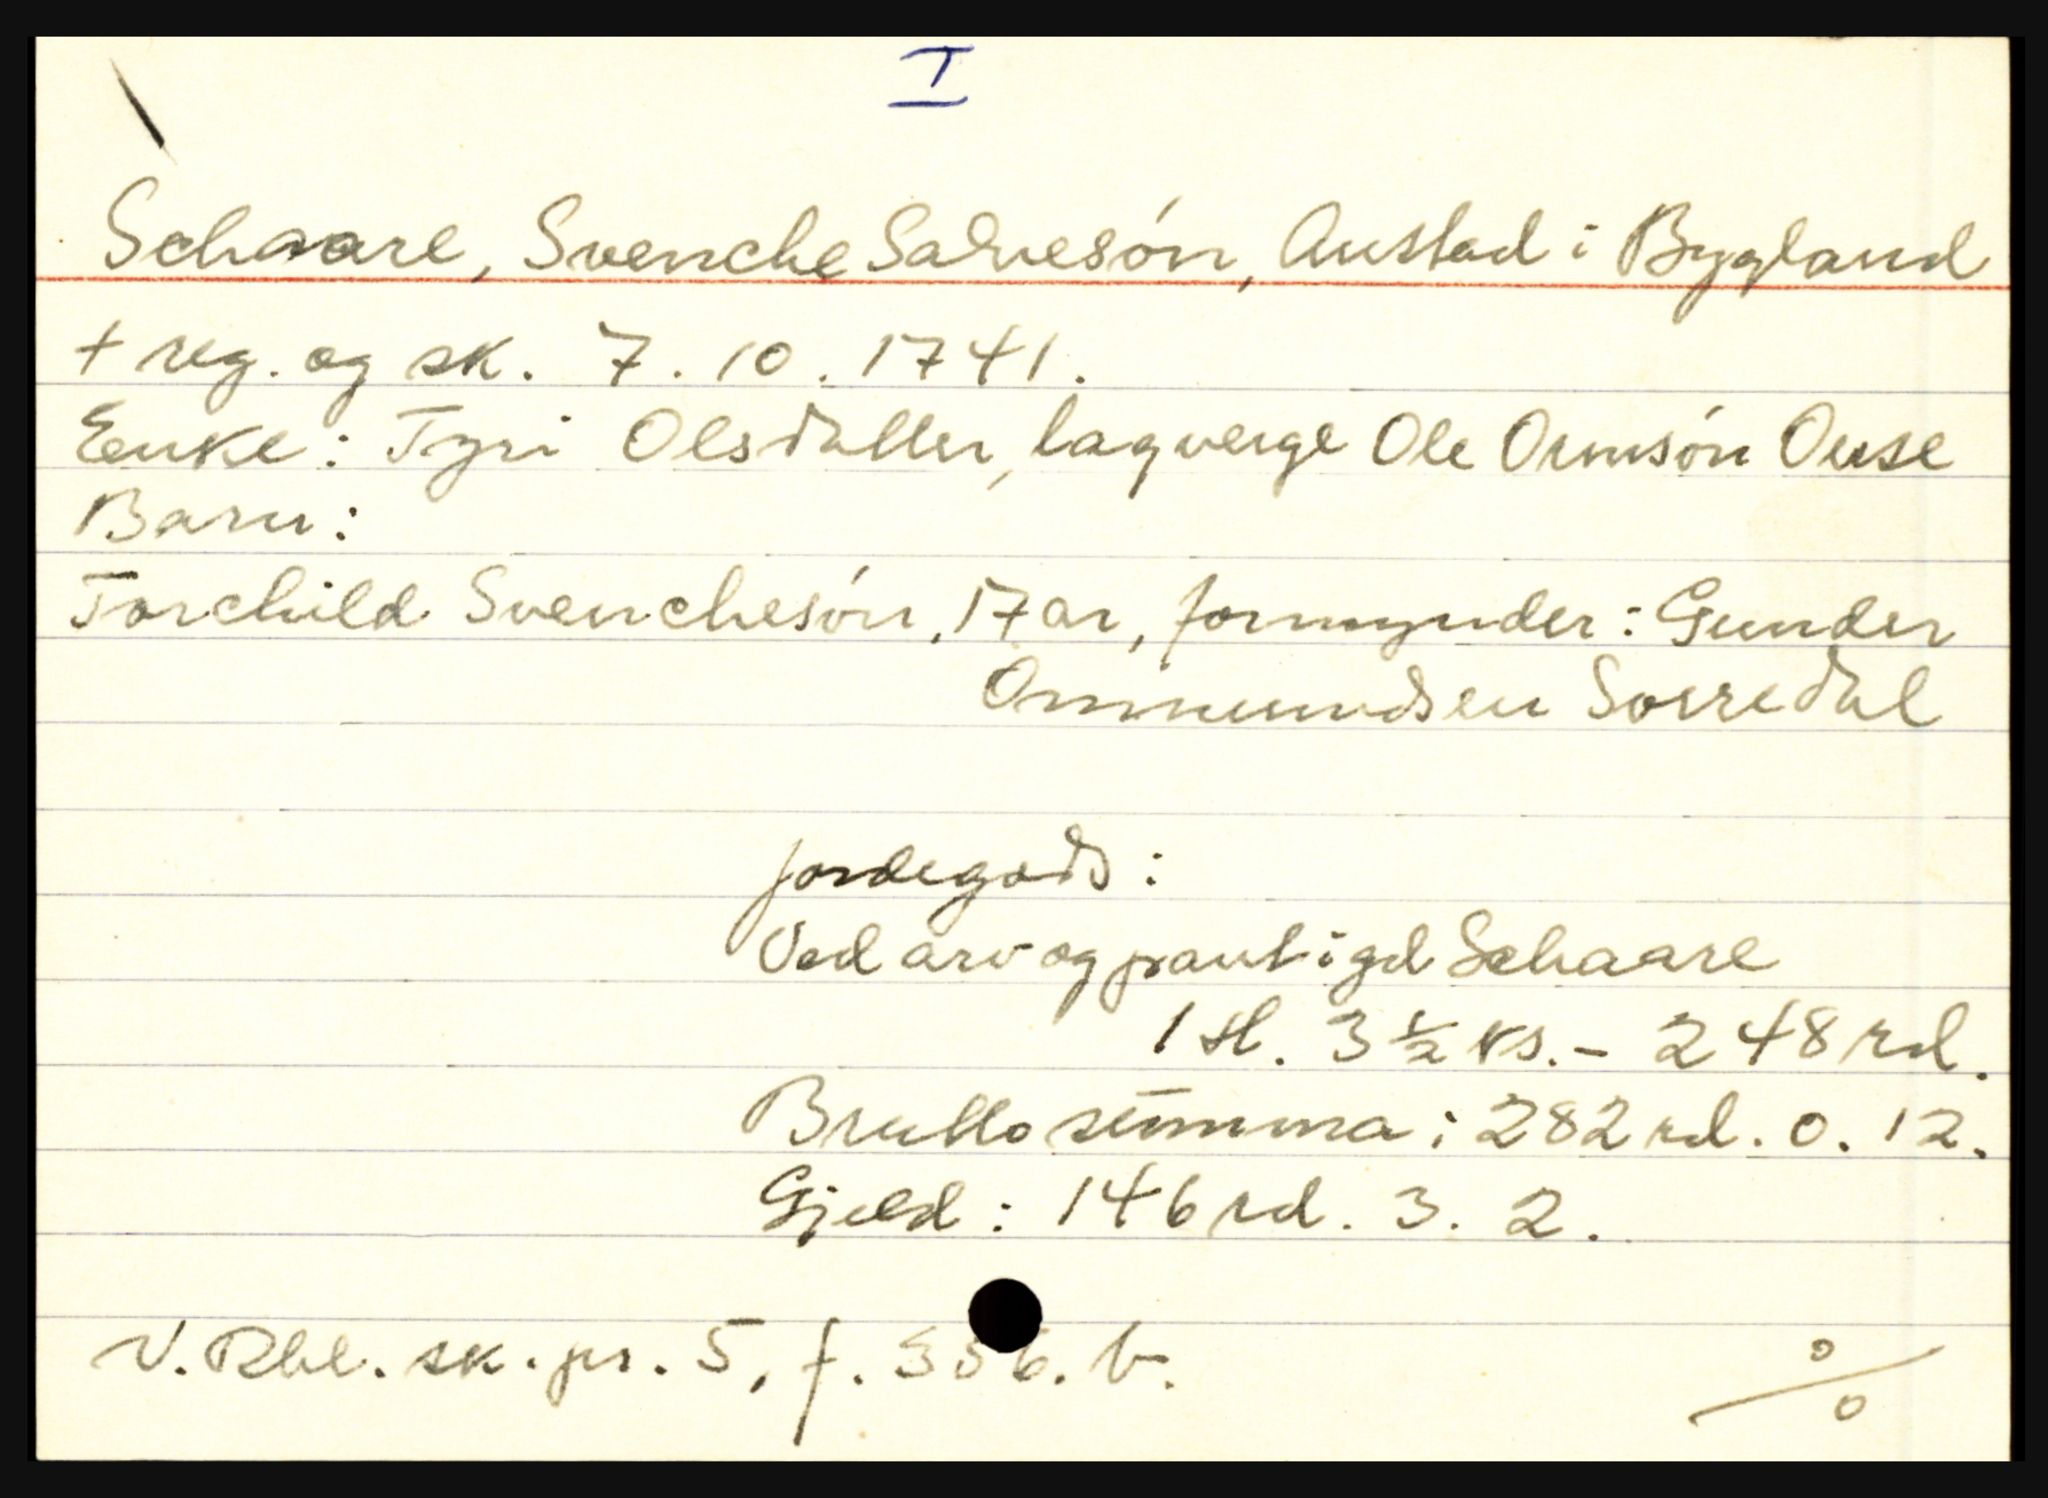 I
Schaare, Svenche Salvesón, Austad i Bygland
+ reg. og sk. 7. 10. 1741.
Enke: Tyri Olsdatter, lagverge Ole Ormsón Ouse
Barn:
Torchild Svenchesón, 17 ar, formynder: Gunder
Ommundsen Sorredal
Jordegods:
Ved arv og pant i gd Schaare
1 tl. 3 1/2 ks. - 248 rd.
Brutto summa: 282 rd. 0. 12.
Gjeld: 146 rd. 3. 2.
V. Rbl. sk. pr. 5, f. 356. b.
o/o